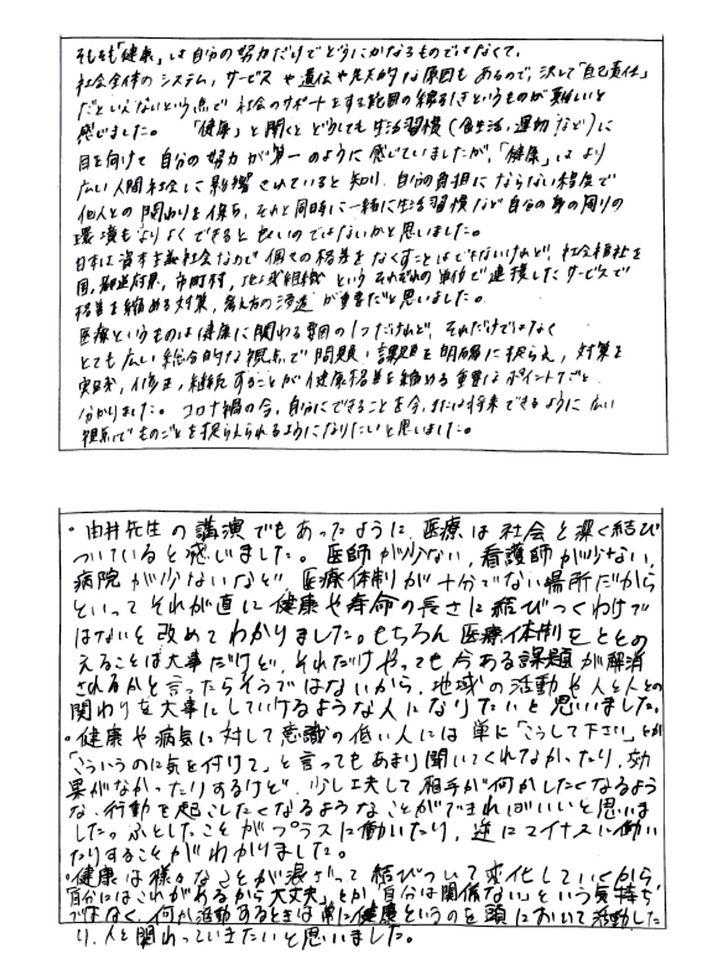 そもそも「健康」は自分の努力だけでどうにかなるものではなくて、
社会全体のシステム、サービスや遺伝や先天的な原因もあるので、決して「自己責任」
だといえないという点で社会のサポートをする範囲の線引きというものが難しいと
感じました。 「健康」と聞くとどうしても生活習慣(食生活、運動など)に
目を向けて自分の努力が第一のように感じていましたが、「健康」はより
広い人間社会に影響されていると知り、自分の負担にならない程度で
他人との関わりを保ち、それと同時に一緒に生活習慣など自分の身の周りの
環境もよりよくできると良いのではないかと思いました。
日本は資本主義社会なので個々の格差をなくすことはできないけれど、社会福祉を
国、都道府県、市町村、地域組織というそれぞれの単位で連携したサービスで
格差を縮める対策、考え方の浸透が重要だと思いました。
医療というものは健康に関わる要因の1つだけれど、それだけではなく
とても広い総合的な視点で問題・課題を明確に捉らえ、対策を
実践、修正、継続することが健康格差を縮める重要なポイントだと
分かりました。コロナ禍の今、自分にできることを今、または将来できるように広い
視点でものごとを捉らえられるようになりたいと思いました。
・由井先生の講演でもあったように、医療は社会と深く結び
ついていると感じました。医師が少ない、看護師が少ない、
病院が少ないなど、医療体制が十分でない場所だから
といってそれが直に健康や寿命の長さに結びつくわけで
はないと改めてわかりました。もちろん医療体制をととの
えることは大事だけど、それだけやっても今ある課題が解消
されるかと言ったらそうではないから、地域の活動や人と人との
関わりを大事にしていけるような人になりたいと思いました。
・健康や病気に対して意識の低い人には単に「こうして下さい」とか
「こういうのに気を付けて」と言ってもあまり聞いてくれなかったり、効
果がなかったりするけど、少し工夫して相手が何かしたくなるよう
な、行動を起こしたくなるようなことができればいいと思いま
した。ふとしたことがプラスに働いたり、逆にマイナスに働い
たりすることがわかりました。
・健康は様々なことが混ざって結びついて変化していくから
「自分にはこれがあるから大丈夫」とか「自分は関係ない」という気持ち
ではなく、何か活動するときは常に健康というのを頭において活動した
り、人と関わっていきたいと思いました。